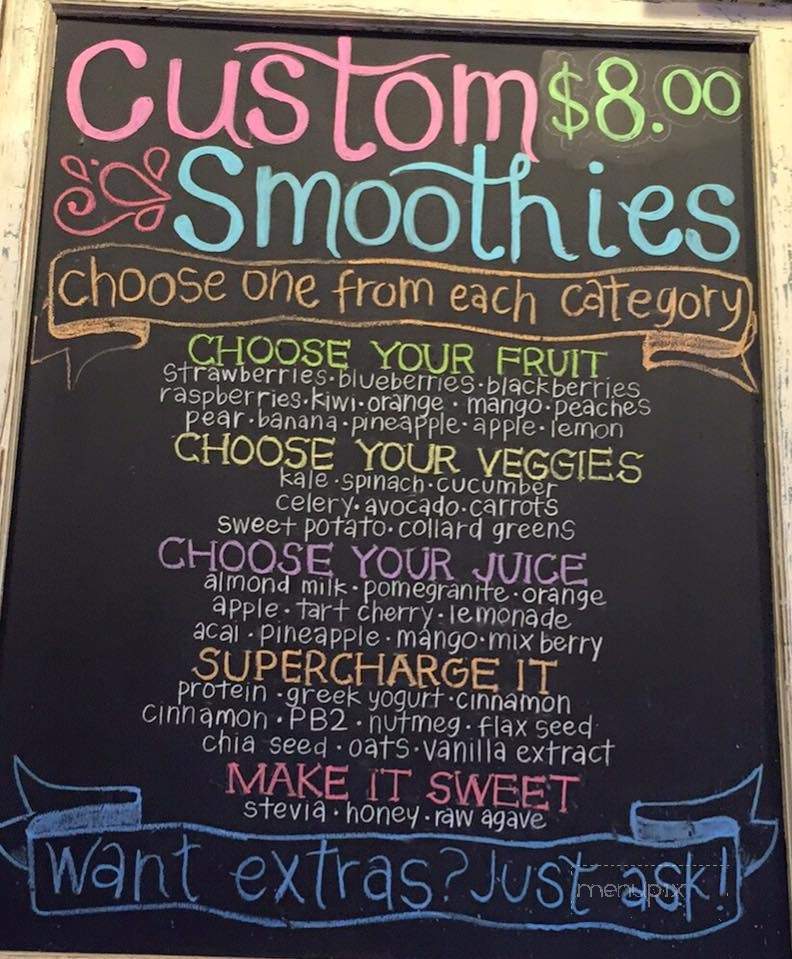 Custom $8.00
Smoothies
choose one from each category
CHOOSE YOUR FRUIT
strawberries·blueberries·blackberries
raspberries·kiwi·orange·mango·peaches
pear·banana·pineapple·apple·lemon
CHOOSE YOUR VEGGIES
kale·spinach·cucumber
celery·avocado·carrots
sweet potato·collard greens
CHOOSE YOUR JUICE
almond milk·pomegranite·orange
apple·tart cherry·lemonade
acai·pineapple·mango·mix berry
SUPERCHARGE IT
protein·greek yogurt·cinnamon
cinnamon·PB2·nutmeg·flax seed
chia seed·oats·vanilla extract
MAKE IT SWEET
stevia·honey·raw agave
Want extras? Just ask!
menupix